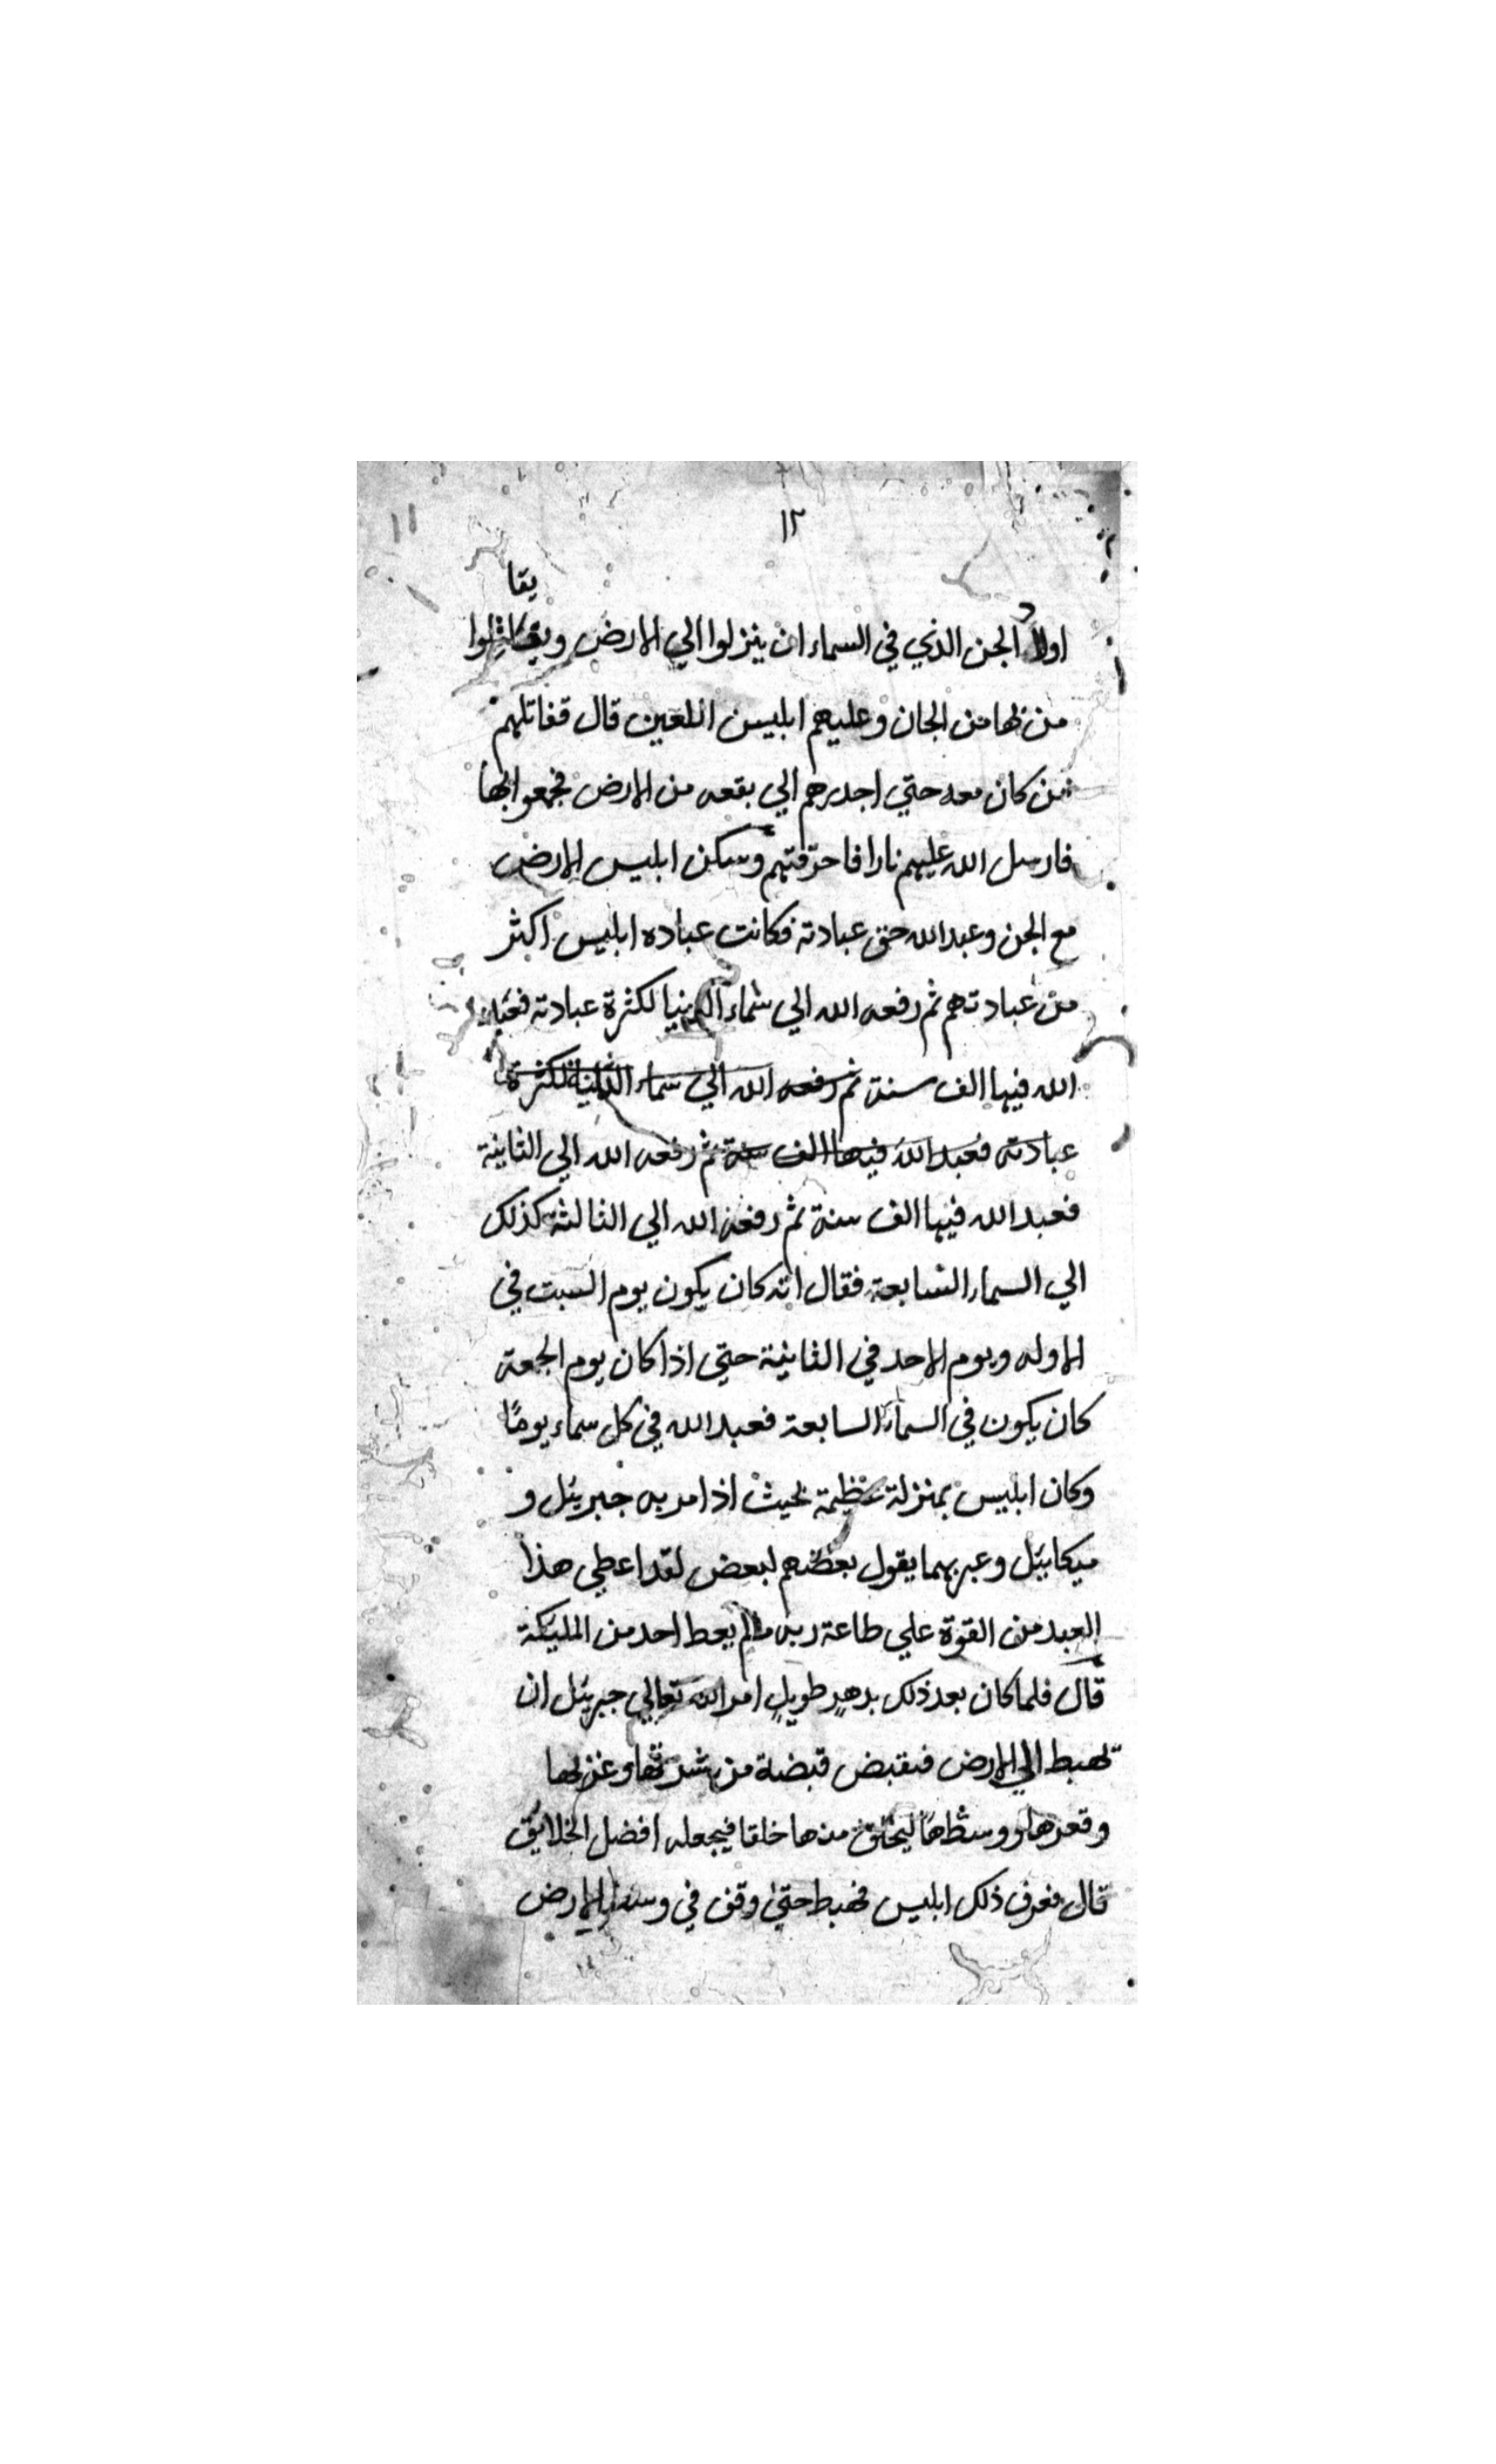 ١٢
يقا
اولاد الجن الذي في السماء ان ينزلوا الي الارض ويقاتلوا
من بها من الجان وعليهم ابليس اللعين قال فقاتلهم
من كان معه حتي اجدرهم الي بقعه من الارض فجمعوا بها
فارسل الله عليهم نارا فاحرقتهم وسكن ابليس الارض
مع الجن وعبد الله حق عبادته فكانت عباده ابليس اكثر
من عبادتهم ثم رفعه الله الي سماء الدينيا لكثرة عبادته فعبد
الله فيها الف سنة ثم رفعه الله الي سماء الثانية لكثرة
عبادته فعبد الله فيها الف سنة ثم رفعه الله الي الثانية
فعبد الله فيها الف سنة ثم رفعه الله الي الثالثة كذلك
الي السماء السابعة فقال انه كان يكون يوم السبت في
الاوله ويوم الاحد في الثانية حتي اذا كان يوم الجمعة
كان يكون في السماء السابعة فعبد الله في كل سماء يومًا
وكان ابليس بمنزلة عظيمة بحيث اذا مر به جبريئل و
ميكاييئل وعبر بهما يقول بعضهم لبعض لقد اعطي هذا
العبد من القوة علي طاعة ربه مالم يعط احد من المليكة
قال فلما كان بعد ذلك بدهرٍ طويلٍ امر الله تعالي جبريئل ان
تهبط الي الارض فيقبض قبضة من شرقها وغربها
وقعرها ووسطها ليخلق منها خلقا فيجعله افضل الخلايق
قال فعرف ذلك ابليس فهبط حتي وقف في وسط الارض